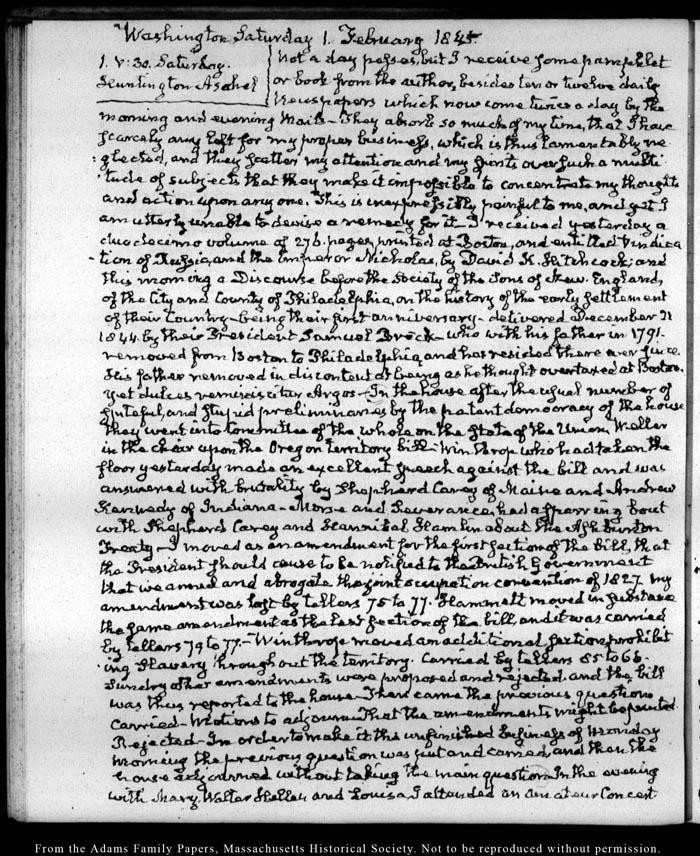 Washington Saturday 1. February 1845.
1. V:30. Saturday.
Huntington Asahel
Not a day passes, but I receive some pamphlet
or book from the author, besides ten or twelve daily
Newspapers which now come twice a day by the
morning and evening Mails— They absorb so much of my time, that I have
scarcely any left for my proper business, which is thus lamentably ne
:glected, and they scatter my attention and my spirits over such a multi
:tude of subjects that they make it impossible to concentrate my thoughts
and action upon any one. This is inexpressibly painful to me, and yet I
am utterly unable to devise a remedy for it— I received yesterday a
duodecimo volume of 276 pages, printed at Boston, and entitled Vindica
-tion of Russia, and the Emperor Nicholas, by David K. Hitchcock; and
this morning a Discourse before the Society of the Sons of New England,
of the City and County of Philadelphia, on the history of the early settlement
of their Country—being their first anniversary—delivered December 21
1844. by their President Samuel Breck—who with his father in 1791.
removed from Boston to Philadelphia, and has resided there ever since.
His father removed in discontent at being as he thought overtaxed at Boston.
Yet dulces reminiscitur Argos—In the house after the usual number of
spiteful, and stupid preliminaries by the patent democracy of the house
they went into Committee of the whole on the State of the Union, Weller
in the chair upon the Oregon territory bill—Winthrop who had taken the
floor yesterday made an excellent speech against the bill and was
answered with brutality by Shepherd Carey of Maine and Andrew
Kennedy of Indiana—Morse and Severance, had a sparring bout
with Shepherd Carey and Hannibal Hamlin about the Ashburton
Treaty—I moved as an amendment for the first section of the bill, that
the President should cause to be notified to the British Government
that we annul and abrogate the joint occupation convention of 1827. My
amendment was lost by tellers 75 to 77. Hammett moved in substance
the same amendment as the last section of the bill, and it was carried
by tellers 79 to 77.—Winthrop moved an additional section, prohibit
:ing Slavery throughout the territory. Carried by tellers 85 to 66.
Sundry other amendments were proposed and rejected. and the bill
was thus reported to the house—Then came the previous question
carried—Motions to adjourn—That the amendments might be printed
Rejected—In order to make it the unfinished business of Monday
morning the previous question was put and carried, and then the
house adjourned without taking the main question—In the evening
with Mary, Walter Hellen and Louisa, I attended an amateur Concert
From the Adams Family Papers, Massachusetts Historical Society. Not to be reproduced without permission.